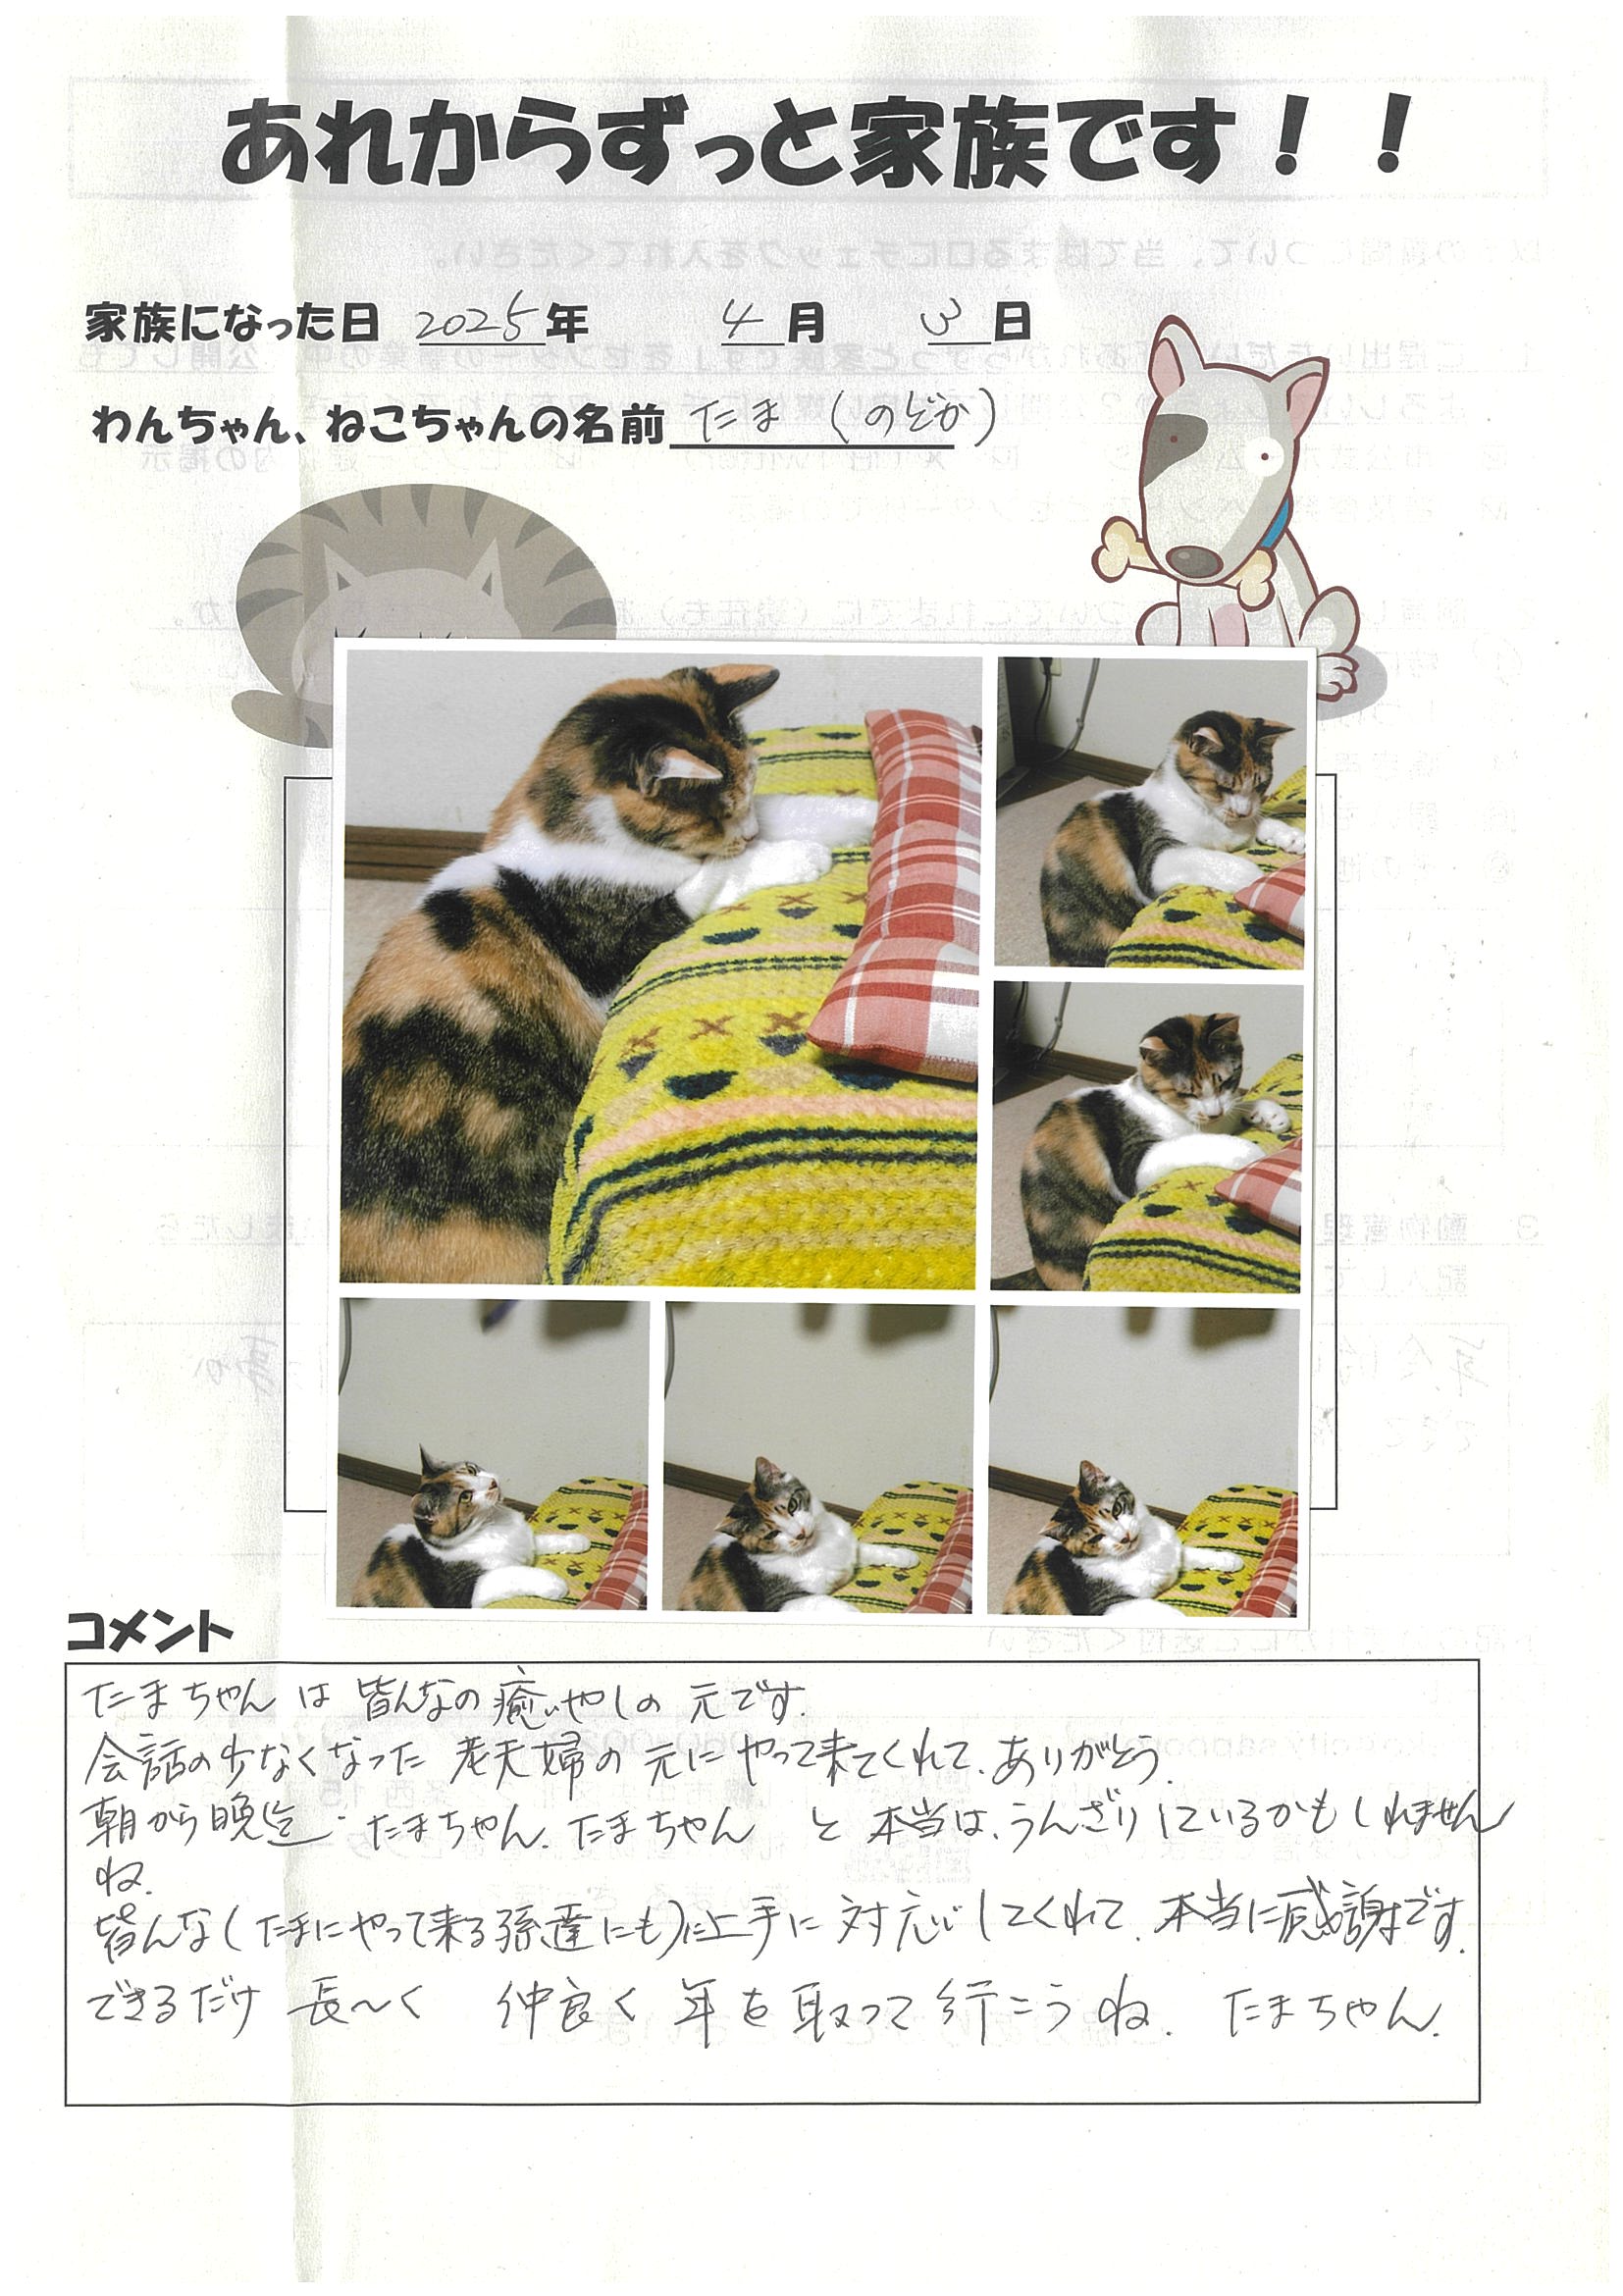 あれからずっと家族です！！
家族になった日 2025年 4月 3日
わんちゃん、ねこちゃんの名前 たま（のどか）
コメント
たまちゃん は 皆んなの 癒いやしの 元です.
会話の少なくなった 老夫婦の 元に やって来てくれて、ありがとう.
朝から晩迄、たまちゃん、たまちゃん と 本当は、うんざりしているかもしれません
ね.
皆んな(たまにやって来る孫達にも)に上手に 対応してくれて、本当に感謝です.
できるだけ 長〜く 仲良く 年を取って行こうね. たまちゃん.